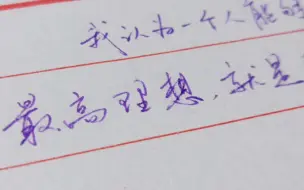 我认为一个人能
最高理想，就是